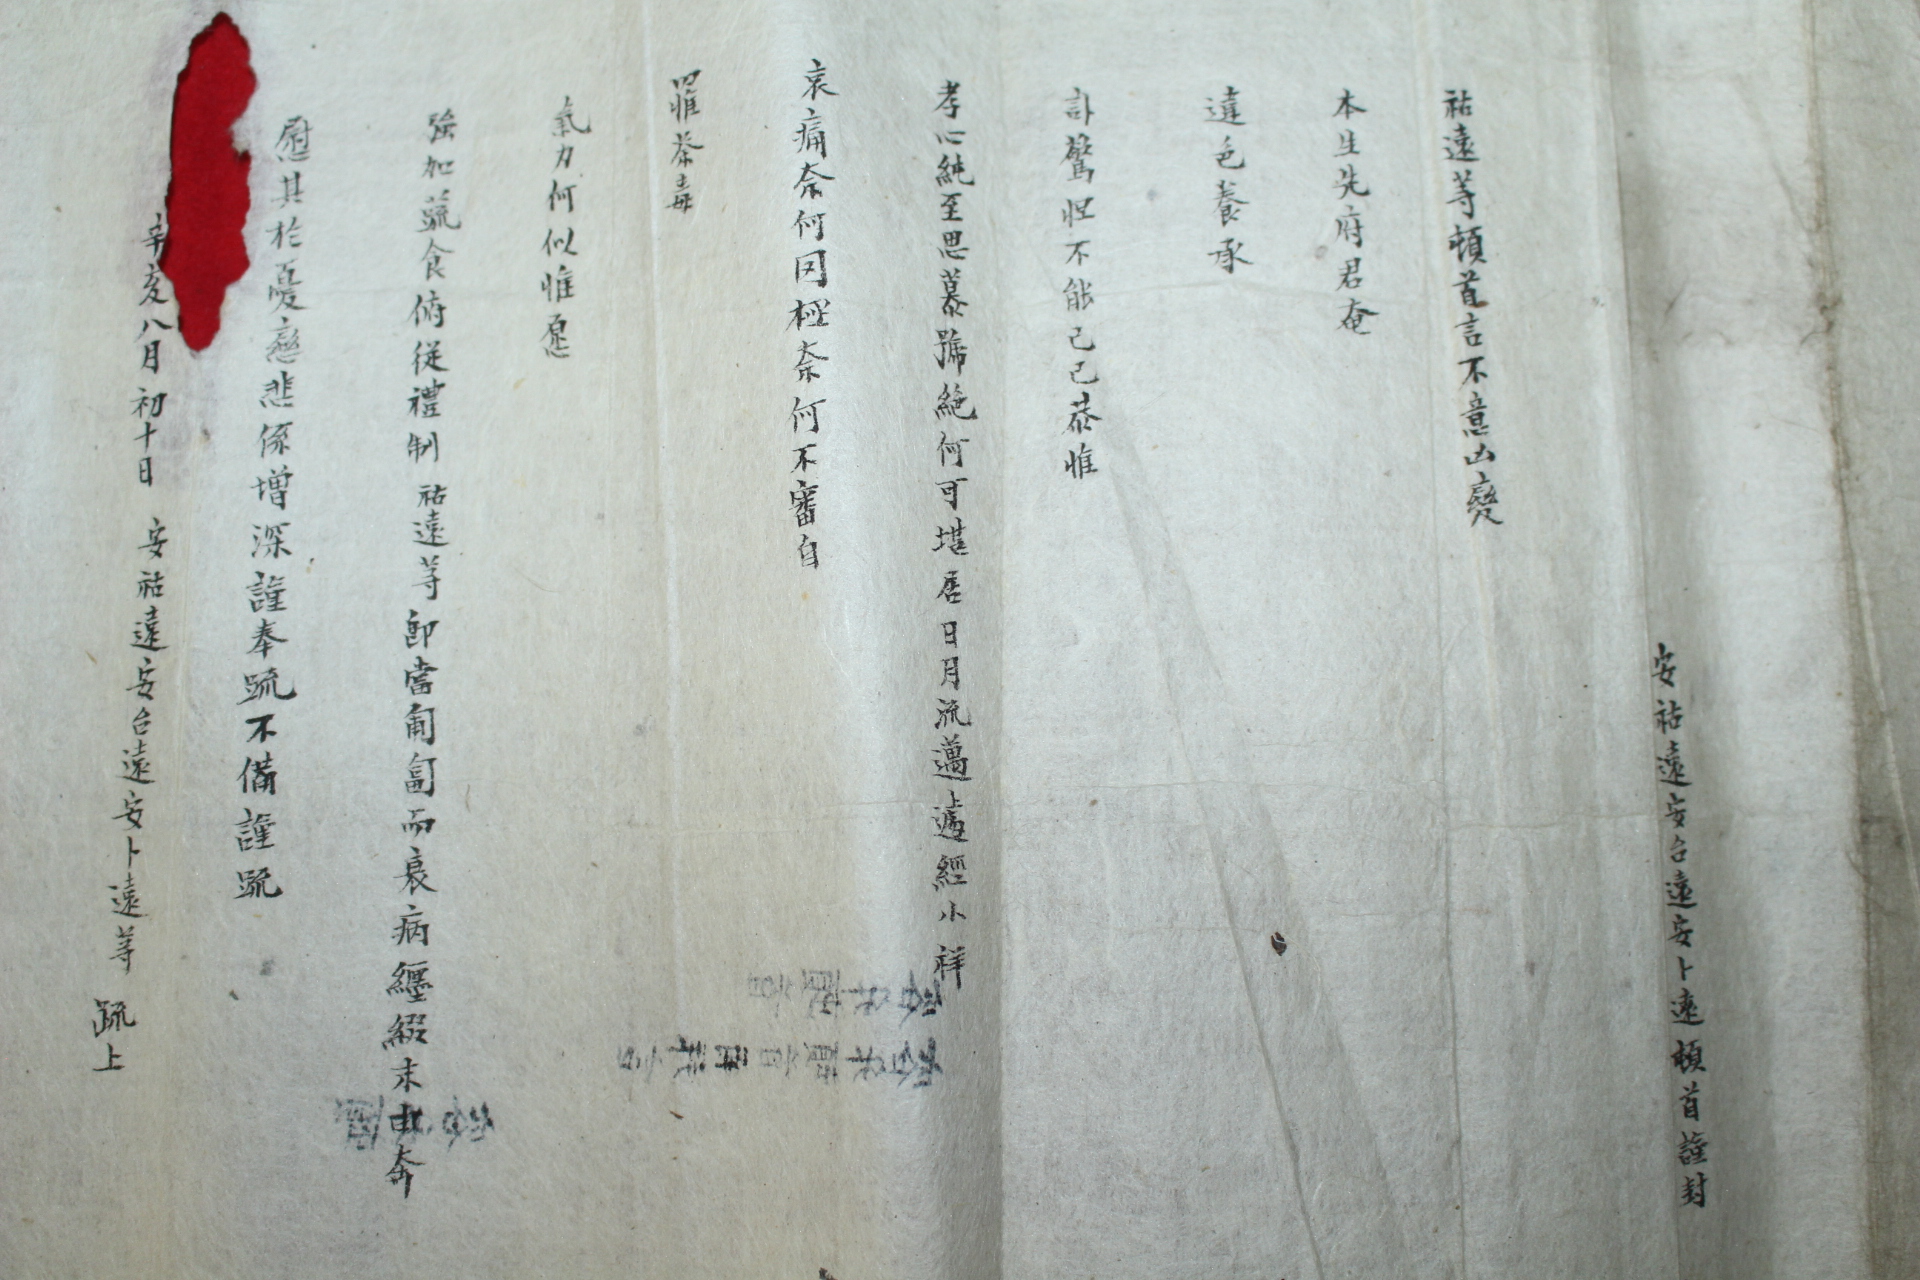 安祐遠安台遠安卜遠頓首謹封
祐遠等頓首言不意凶變
本生先府君奄
違色養承
訃驚怛不能已已恭惟
孝心純至思慕號絶何可堪居日月流邁遽經小祥
哀痛奈何罔極奈何不審自
罹荼毒
氣力何似惟愿
強加蔬食俯從禮制祐遠等卽當匍匐而衰病纏綴末由奔
慰其於憂戀悲係增深謹奉疏不備謹疏
辛亥八月初十日 安祐遠安台遠安卜遠等 疏上